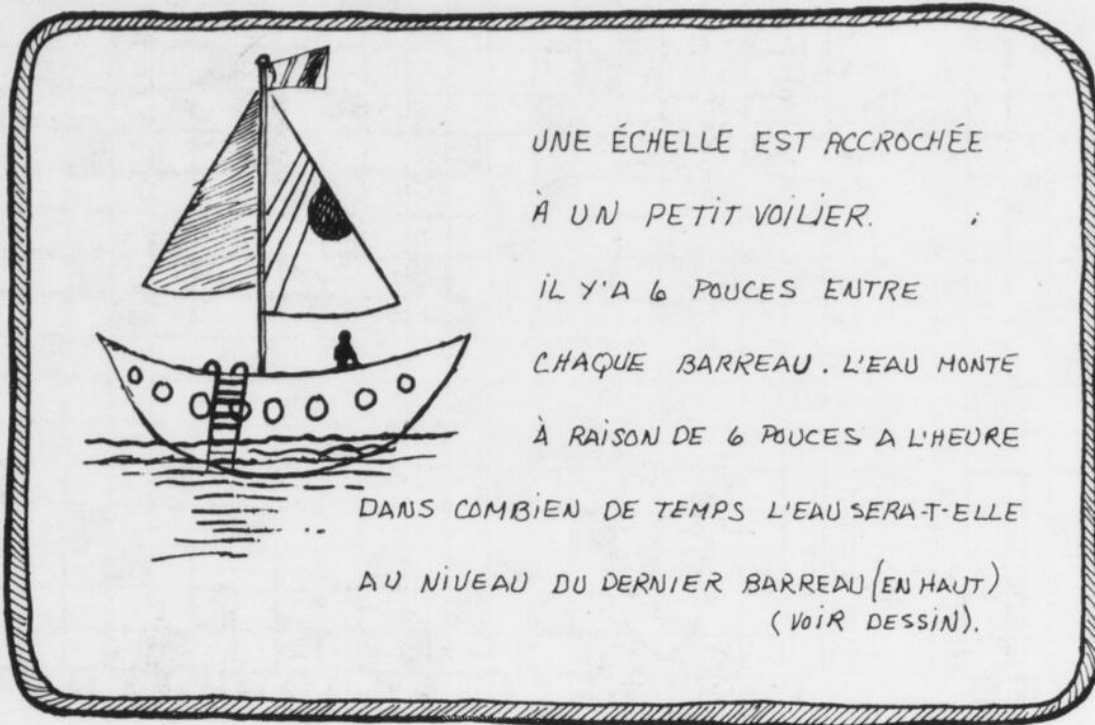 UNE ÉCHELLE EST ACCROCHÉE
À UN PETIT VOILIER.
IL Y'A 6 POUCES ENTRE
CHAQUE BARREAU. L'EAU MONTE
À RAISON DE 6 POUCES A L'HEURE
DANS COMBIEN DE TEMPS L'EAU SERA-T-ELLE
AU NIVEAU DU DERNIER BARREAU (EN HAUT)
(VOIR DESSIN).